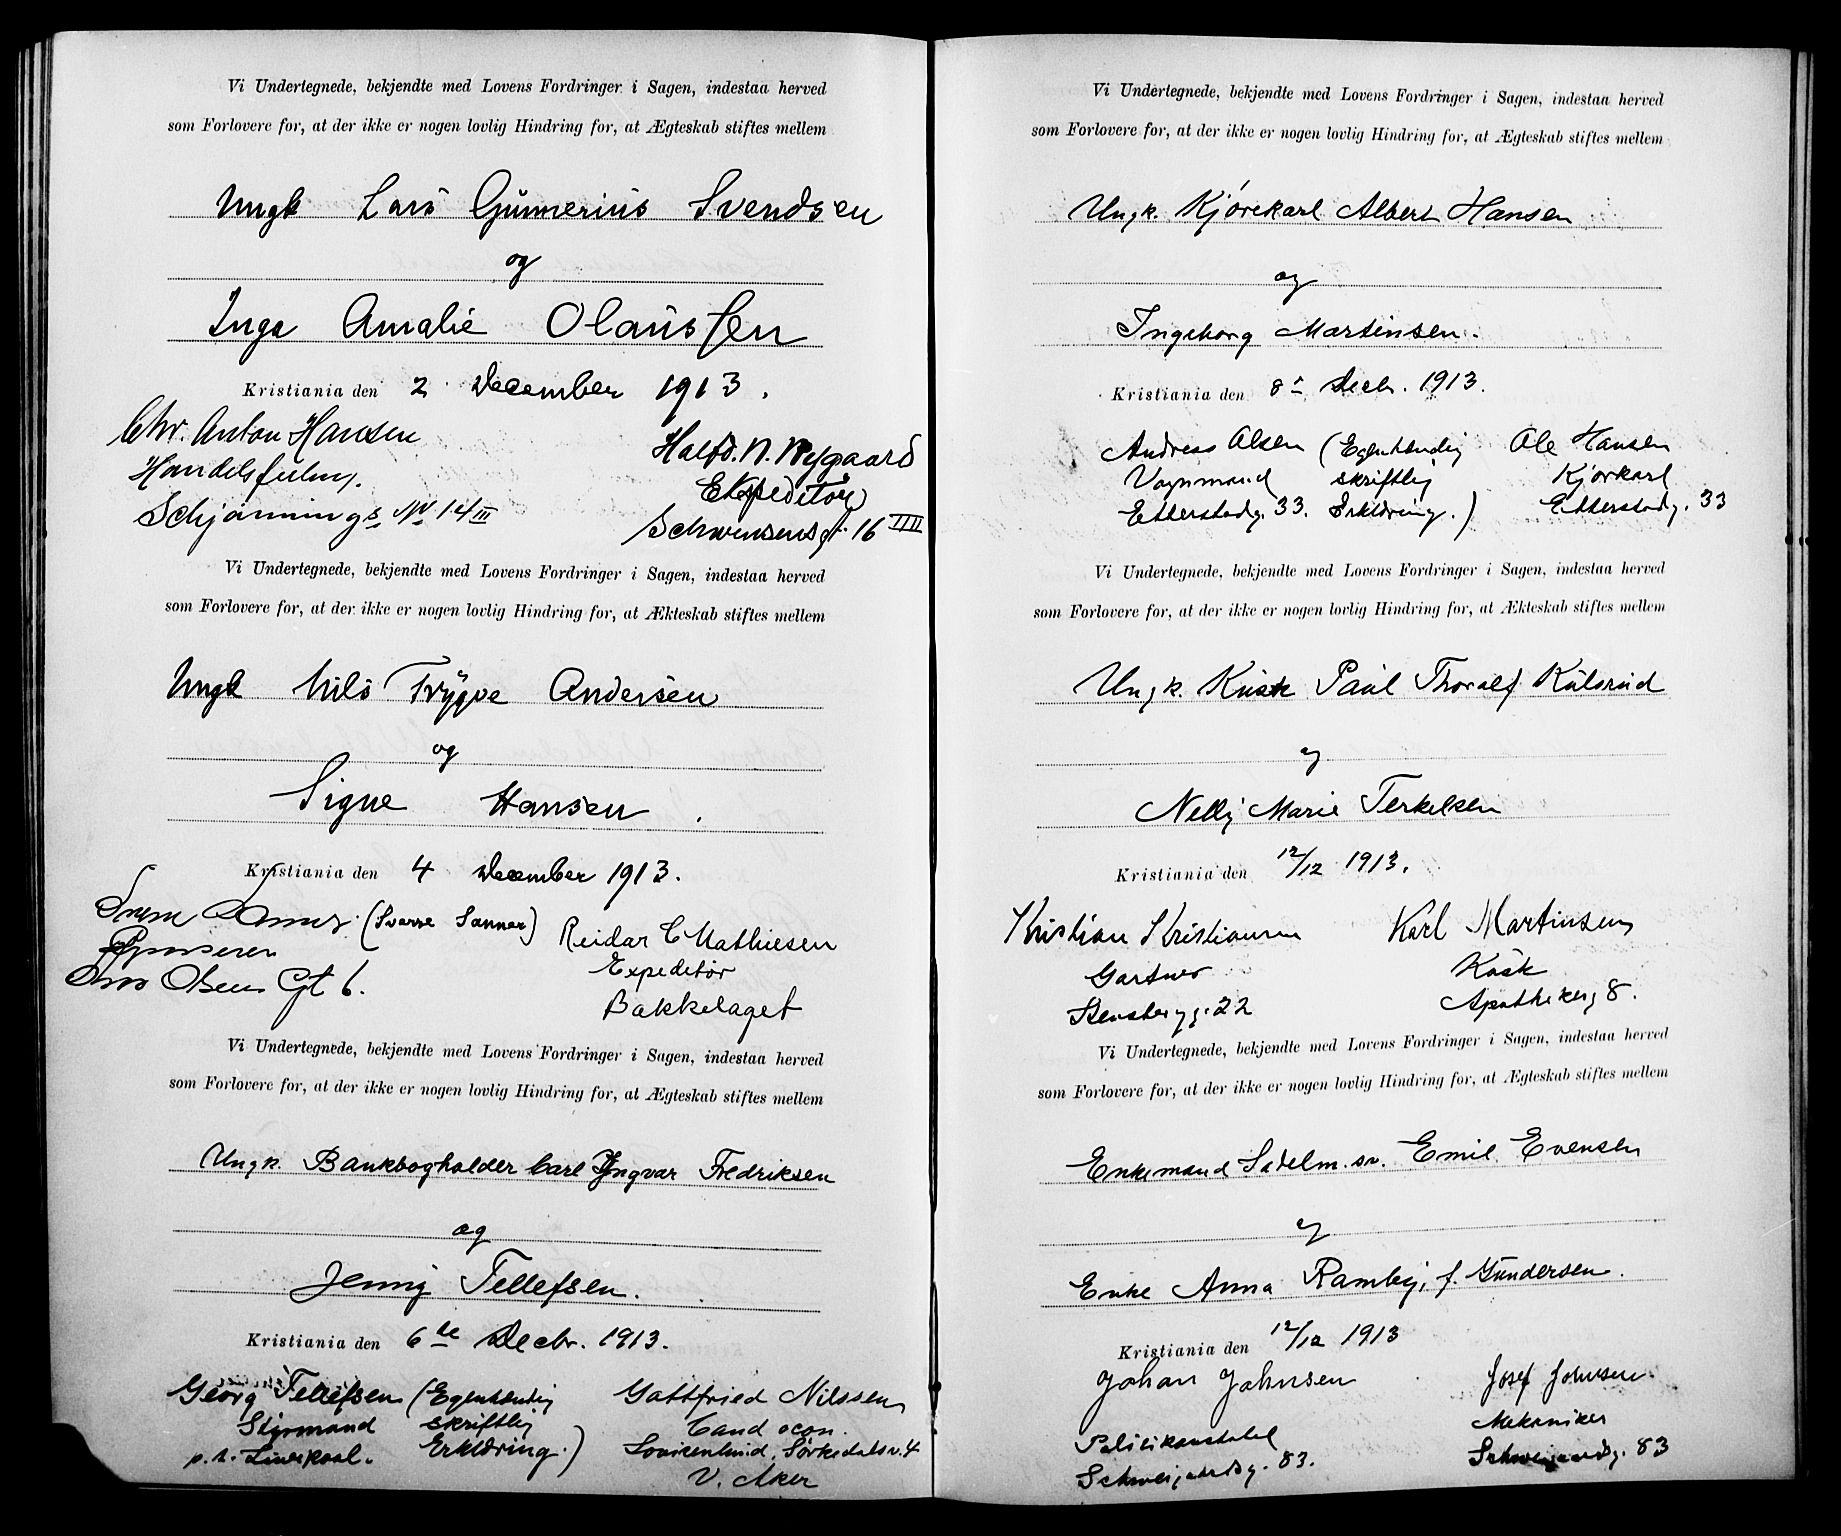 Vi Undertegnede, bekjendte med Lovens Fordringer i Sagen, indestaa herved
som Forlovere for, at der ikke er nogen lovlig Hindring for, at Ægteskab stiftes mellem
Ungk Lars Gunnerius Svendsen
og
Inga Amalie Olaussen
Kristiania den 2 December 1913.
Chr. Anton Hansen
Handelsfulm.
Schjønnings 14 III
Halfd. N. Nygaard
Ekspeditør
Schwensensgt. 16 IIII
Vi Undertegnede, bekjendte med Lovens Fordringer i Sagen, indestaa herved
som Forlovere for, at der ikke er nogen lovlig Hindring for, at Ækteskab stiftes mellem
Ungk Nils Trygve Andersen
og
Signe Hansen.
Kristiania den 4 December 1913.
(Sverre Sanner)
Olsens Gt 6.
Reidar C Mathiesen
Expeditør
Bækkelaget
Vi Undertegnede, bekjendte med Lovens Fordringer i Sagen, indestaa herved
som Forlovere for, at der ikke er nogen lovlig Hindring for, at Ægteskab stiftes mellem
Ungk. Bankbogholder Carl Yngvar Fredriksen
og
Jenny Tellefsen.
Kristiania den 6te Decbr. 1913.
Georg Tellefsen (Egenhændig
Styrmand skriftlig
p. t. Liverpool. Erklæring.)
Gottfried Nilssen
Cand oecon.
Sørkedalsv. 4
V. Aker
Vi Undertegnede, bekjendte med Lovens Fordringer i Sagen, indestaa herved
som Forlovere for, at der ikke er nogen lovlig Hindring for, at Ægteskab stiftes mellem
Ungk. Kjørekarl Albert Hansen
og
Ingeborg Martinsen.
Kristiania den 8de Decbr. 1913.
Andreas Olsen (Egenhændig
Vognmand skriftlig
Etterstadg. 33. Erklæring.)
Ole Hansen
Kjørkarl
Etterstadg. 33
Vi Undertegnede, bekjendte med Lovens Fordringer i Sagen, indestaa herved
som Forlovere for, at der ikke er nogen lovlig Hindring for, at Ækteskab stiftes mellem
Ungk. Kusk Paul Thoralf Kulsrud
og
Nelly Marie Terkelsen
Kristiania den 12/12 1913.
Kristian Kristiansen
Gartner
Stensberg g. 22
Karl Martinsen
Kusk
Apothekerg 8.
Vi Undertegnede, bekjendte med Lovens Fordringer i Sagen, indestaa herved
som Forlovere for, at der ikke er nogen lovlig Hindring for, at Ægteskab stiftes mellem
Enkemand Sadelm. sv. Emil Evensen
og
Enke Anna Ramby, f. Gundersen.
Kristiania den 12/12 1913
Johan Johnsen
Politikonstabel
Schweigaardsg. 83.
Josef Johnsen
Mekaniker
Schweigaardsg. 83